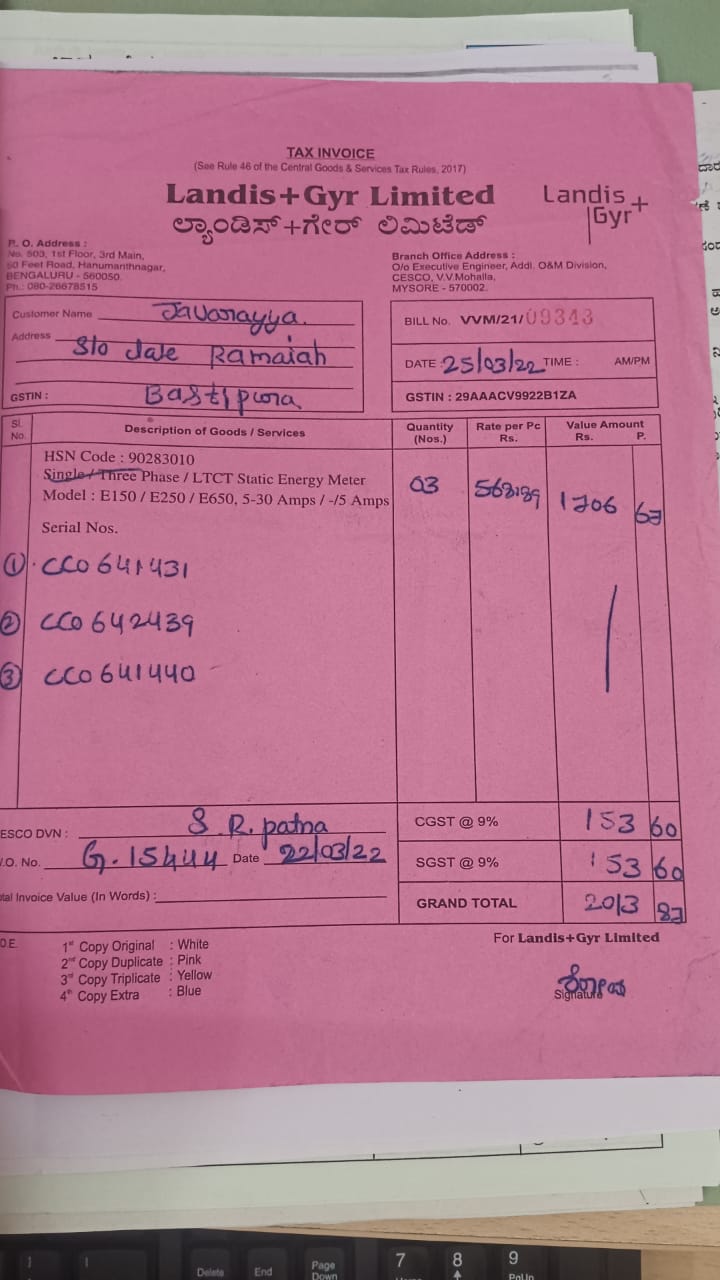 TAX INVOICE
(See Rule 46 of the Central Goods & Services Tax Rules, 2017)
Landis+Gyr Limited
Landis+Gyr+
ಲ್ಯಾಂಡಿಸ್+ಗೇರ್ ಲಿಮಿಟೆಡ್
R. O. Address :
No. 503, 1st Floor, 3rd Main,
50 Feet Road, Hanumanthnagar,
BENGALURU - 560050.
Ph.: 080-26678515
Branch Office Address :
O/o Executive Engineer, Addl. O&M Division,
CESCO, V.V.Mohalla,
MYSORE - 570002.
Customer Name Javarayya.
Address S/o late Ramaiah
GSTIN : Bastipura
BILL No. VVM/21/09343
DATE : 25/03/22 TIME : AM/PM
GSTIN : 29AAACV9922B1ZA
Sl. No. Description of Goods / Services Quantity (Nos.) Rate per Pc Rs. Value Amount Rs. P.
HSN Code : 90283010
Single / Three Phase / LTCT Static Energy Meter
Model : E150 / E250 / E650, 5-30 Amps / -/5 Amps
03 568.89 1706 67
Serial Nos.
① CC0641431
② CC0642439
③ CC0641440
ESCO DVN : S. R. patna
CGST @ 9% 153 60
.O. No. G.15444 Date 22/03/22
SGST @ 9% 153 60
tal Invoice Value (In Words) :
GRAND TOTAL 2013 87
O.E.
1st Copy Original : White
2nd Copy Duplicate : Pink
3rd Copy Triplicate : Yellow
4th Copy Extra : Blue
For Landis+Gyr Limited
Signature
Delete End Page Down 7 8 9 PgUp